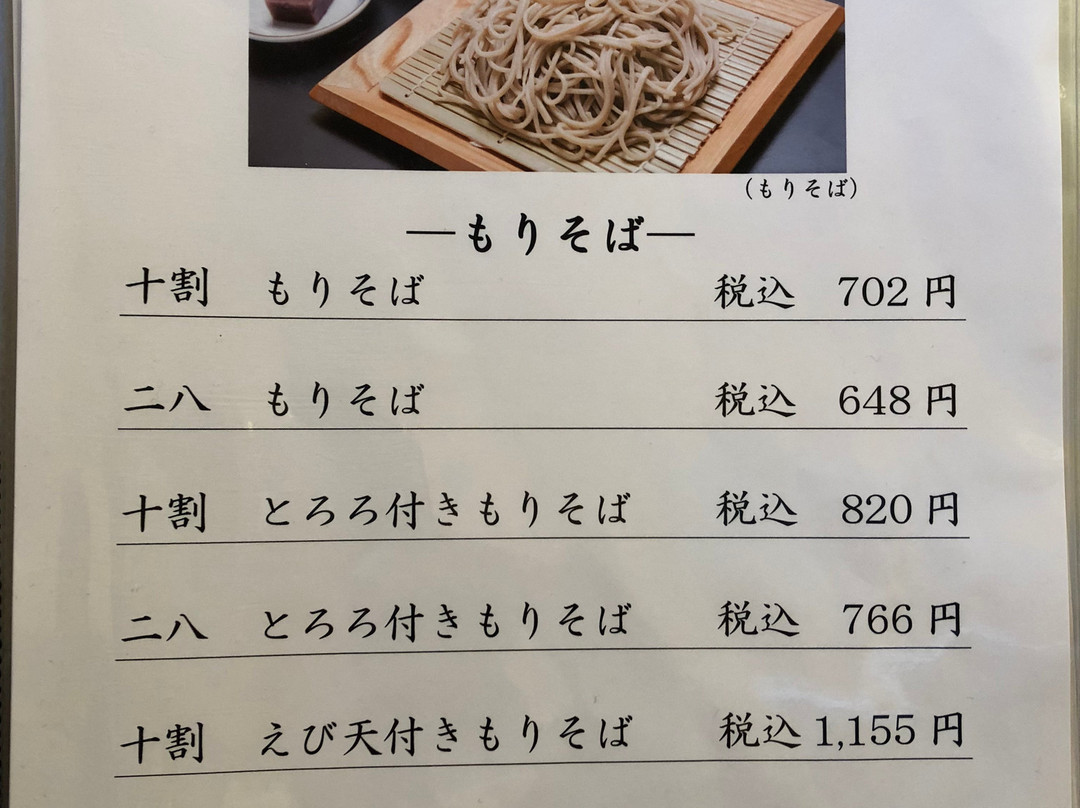 （もりそば）
―もりそば―
十割 もりそば 税込 702円
二八 もりそば 税込 648円
十割 とろろ付きもりそば 税込 820円
二八 とろろ付きもりそば 税込 766円
十割 えび天付きもりそば 税込 1,155円